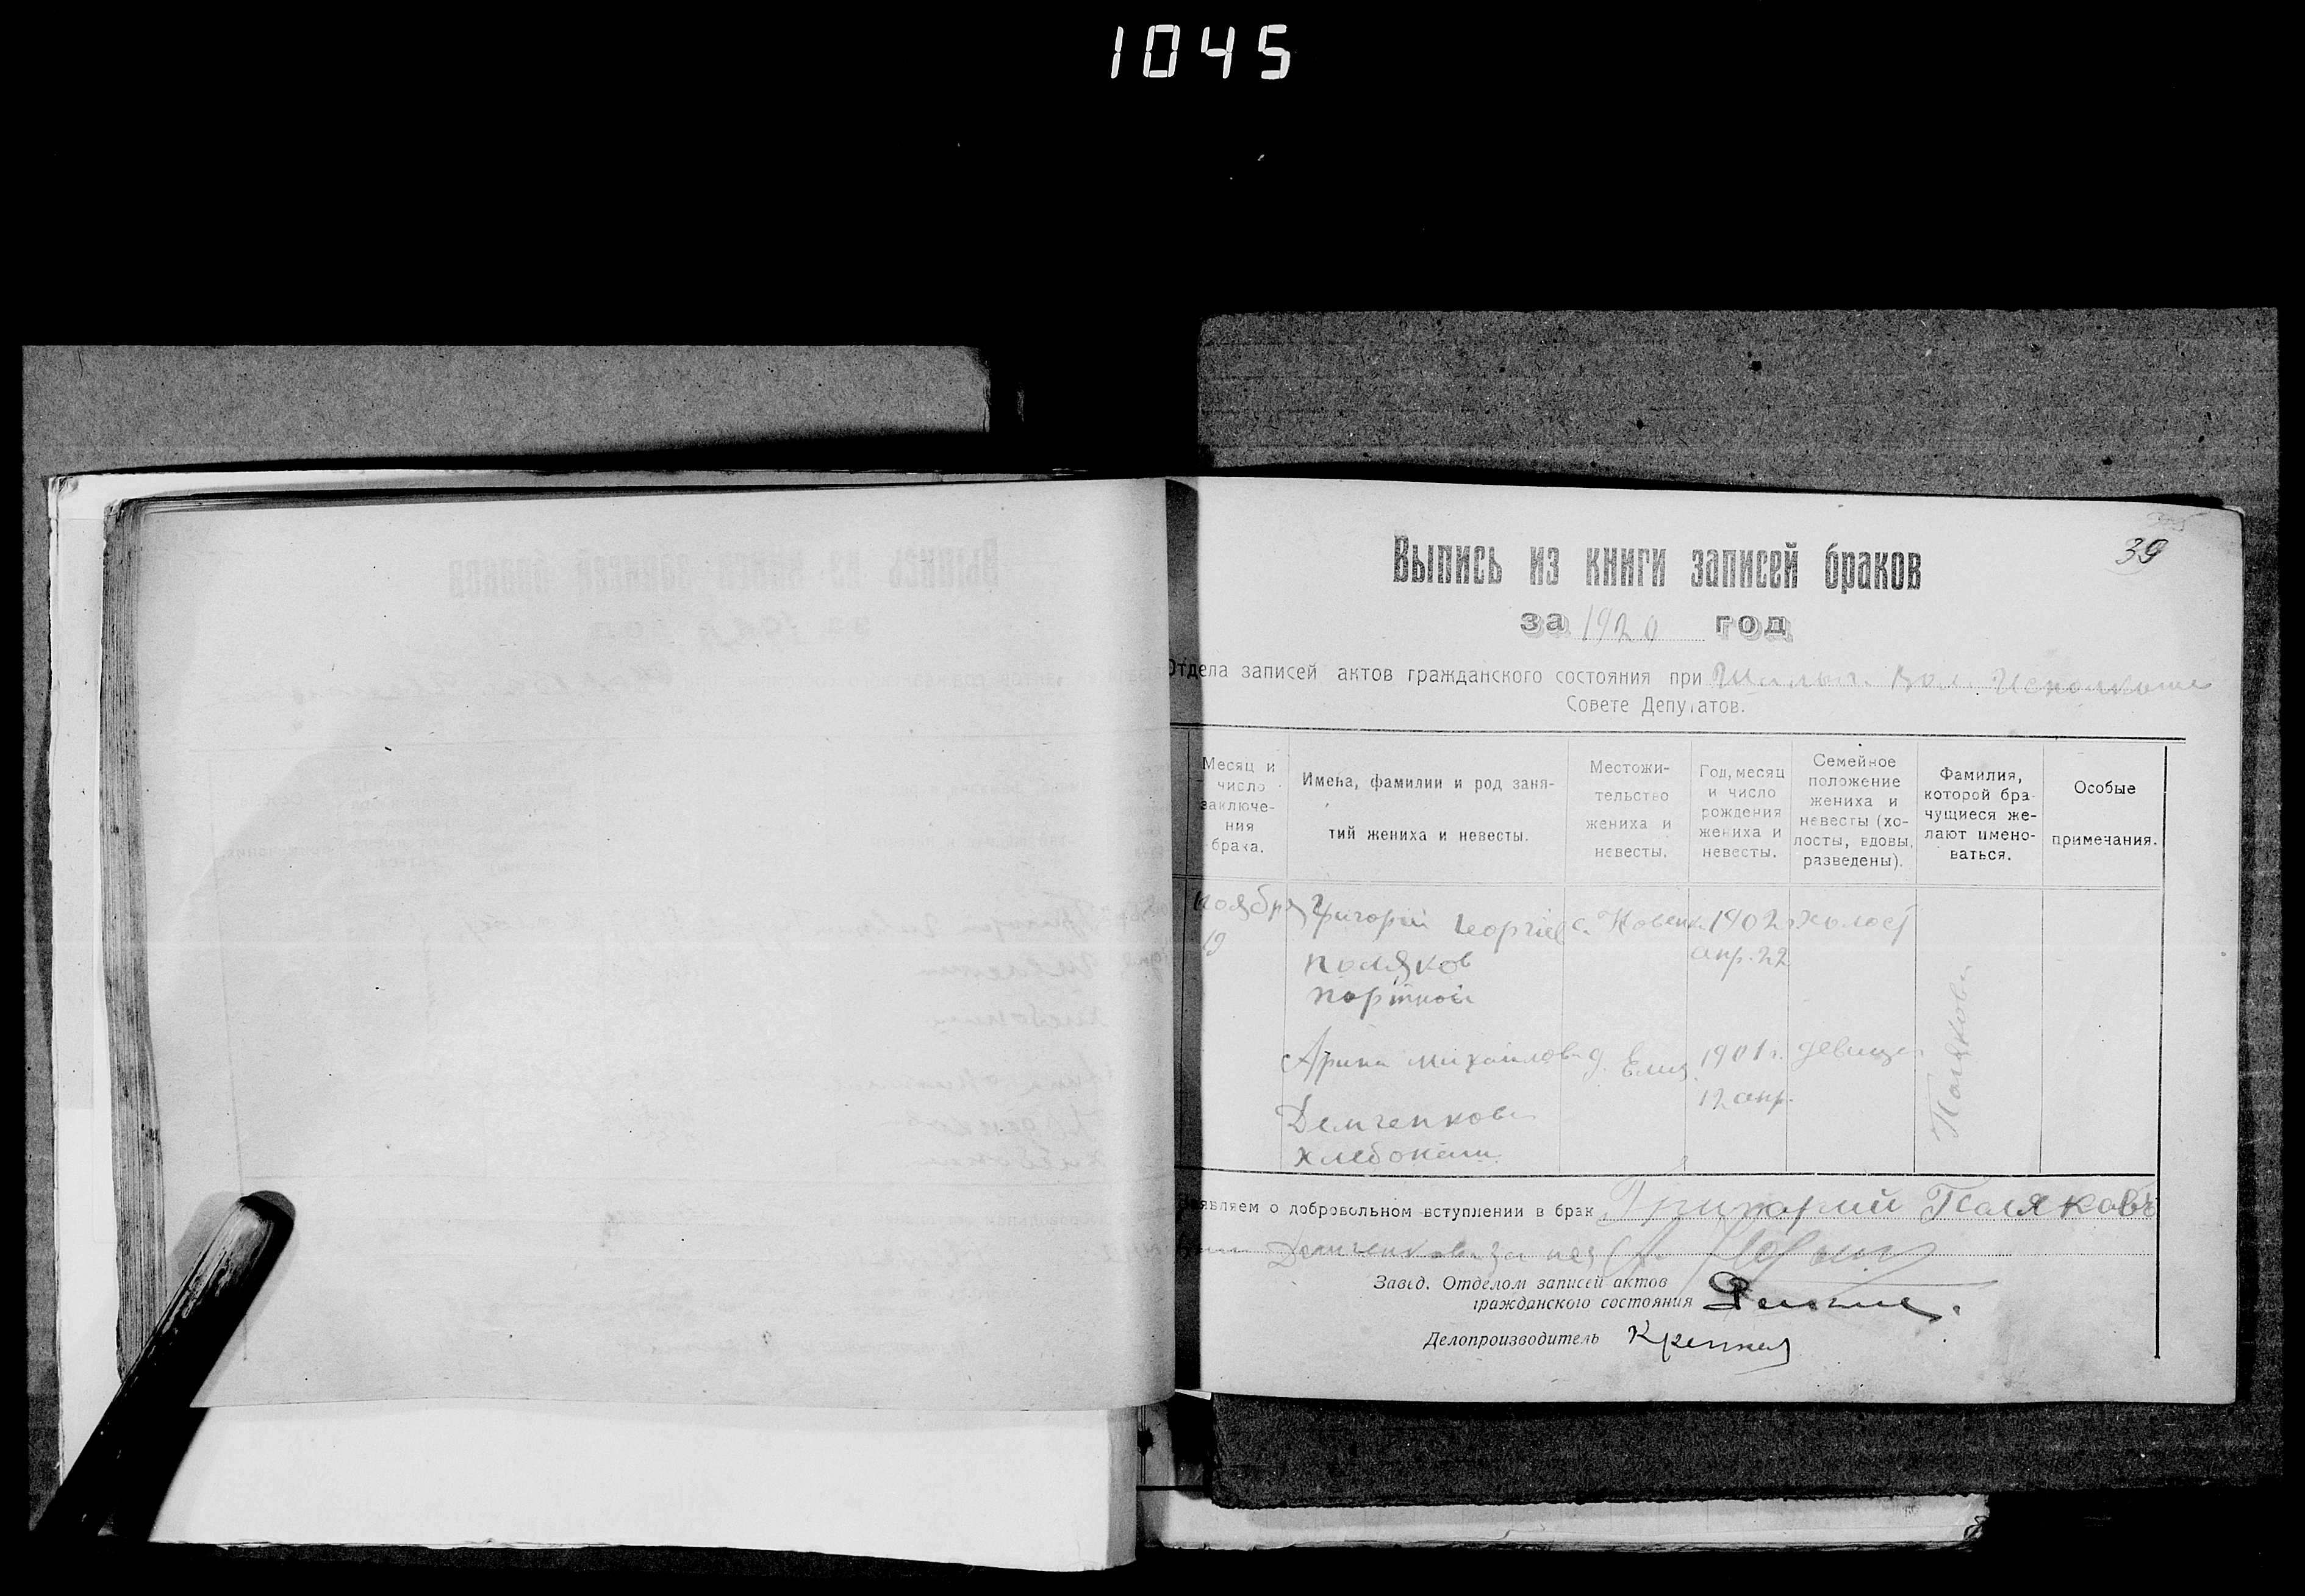 1045
39
Выпись из книги записей браков
за 1920 год
Отдела записей актов гражданского состояния при Вол. Исполкоме
Совете Депутатов.
Месяц и число заключения брака.
Имена, фамилии и род заня-
тий жениха и невесты.
Местожи-
тельство
жениха и
невесты.
Год, месяц
и число
рождения
жениха и
невесты.
Семейное
положение
жениха и
невесты (хо-
лосты, вдовы,
разведены).
Фамилия,
которой бра-
чущиеся же-
лают имено-
ваться.
Особые
примечания.
Ноября
19
Григорий Георгиев
Поляков
портной
с.
1902
апр. 22
холост
Арина Михайлова
Демченкова
хлебопаш.
д.
1901 г.
12 апр.
девица
Поляковы
являем о добровольном вступлении в брак Григорий Поляковъ
Демченкова за нея
Завед. Отделом записей актов
гражданского состояния
Делопроизводитель